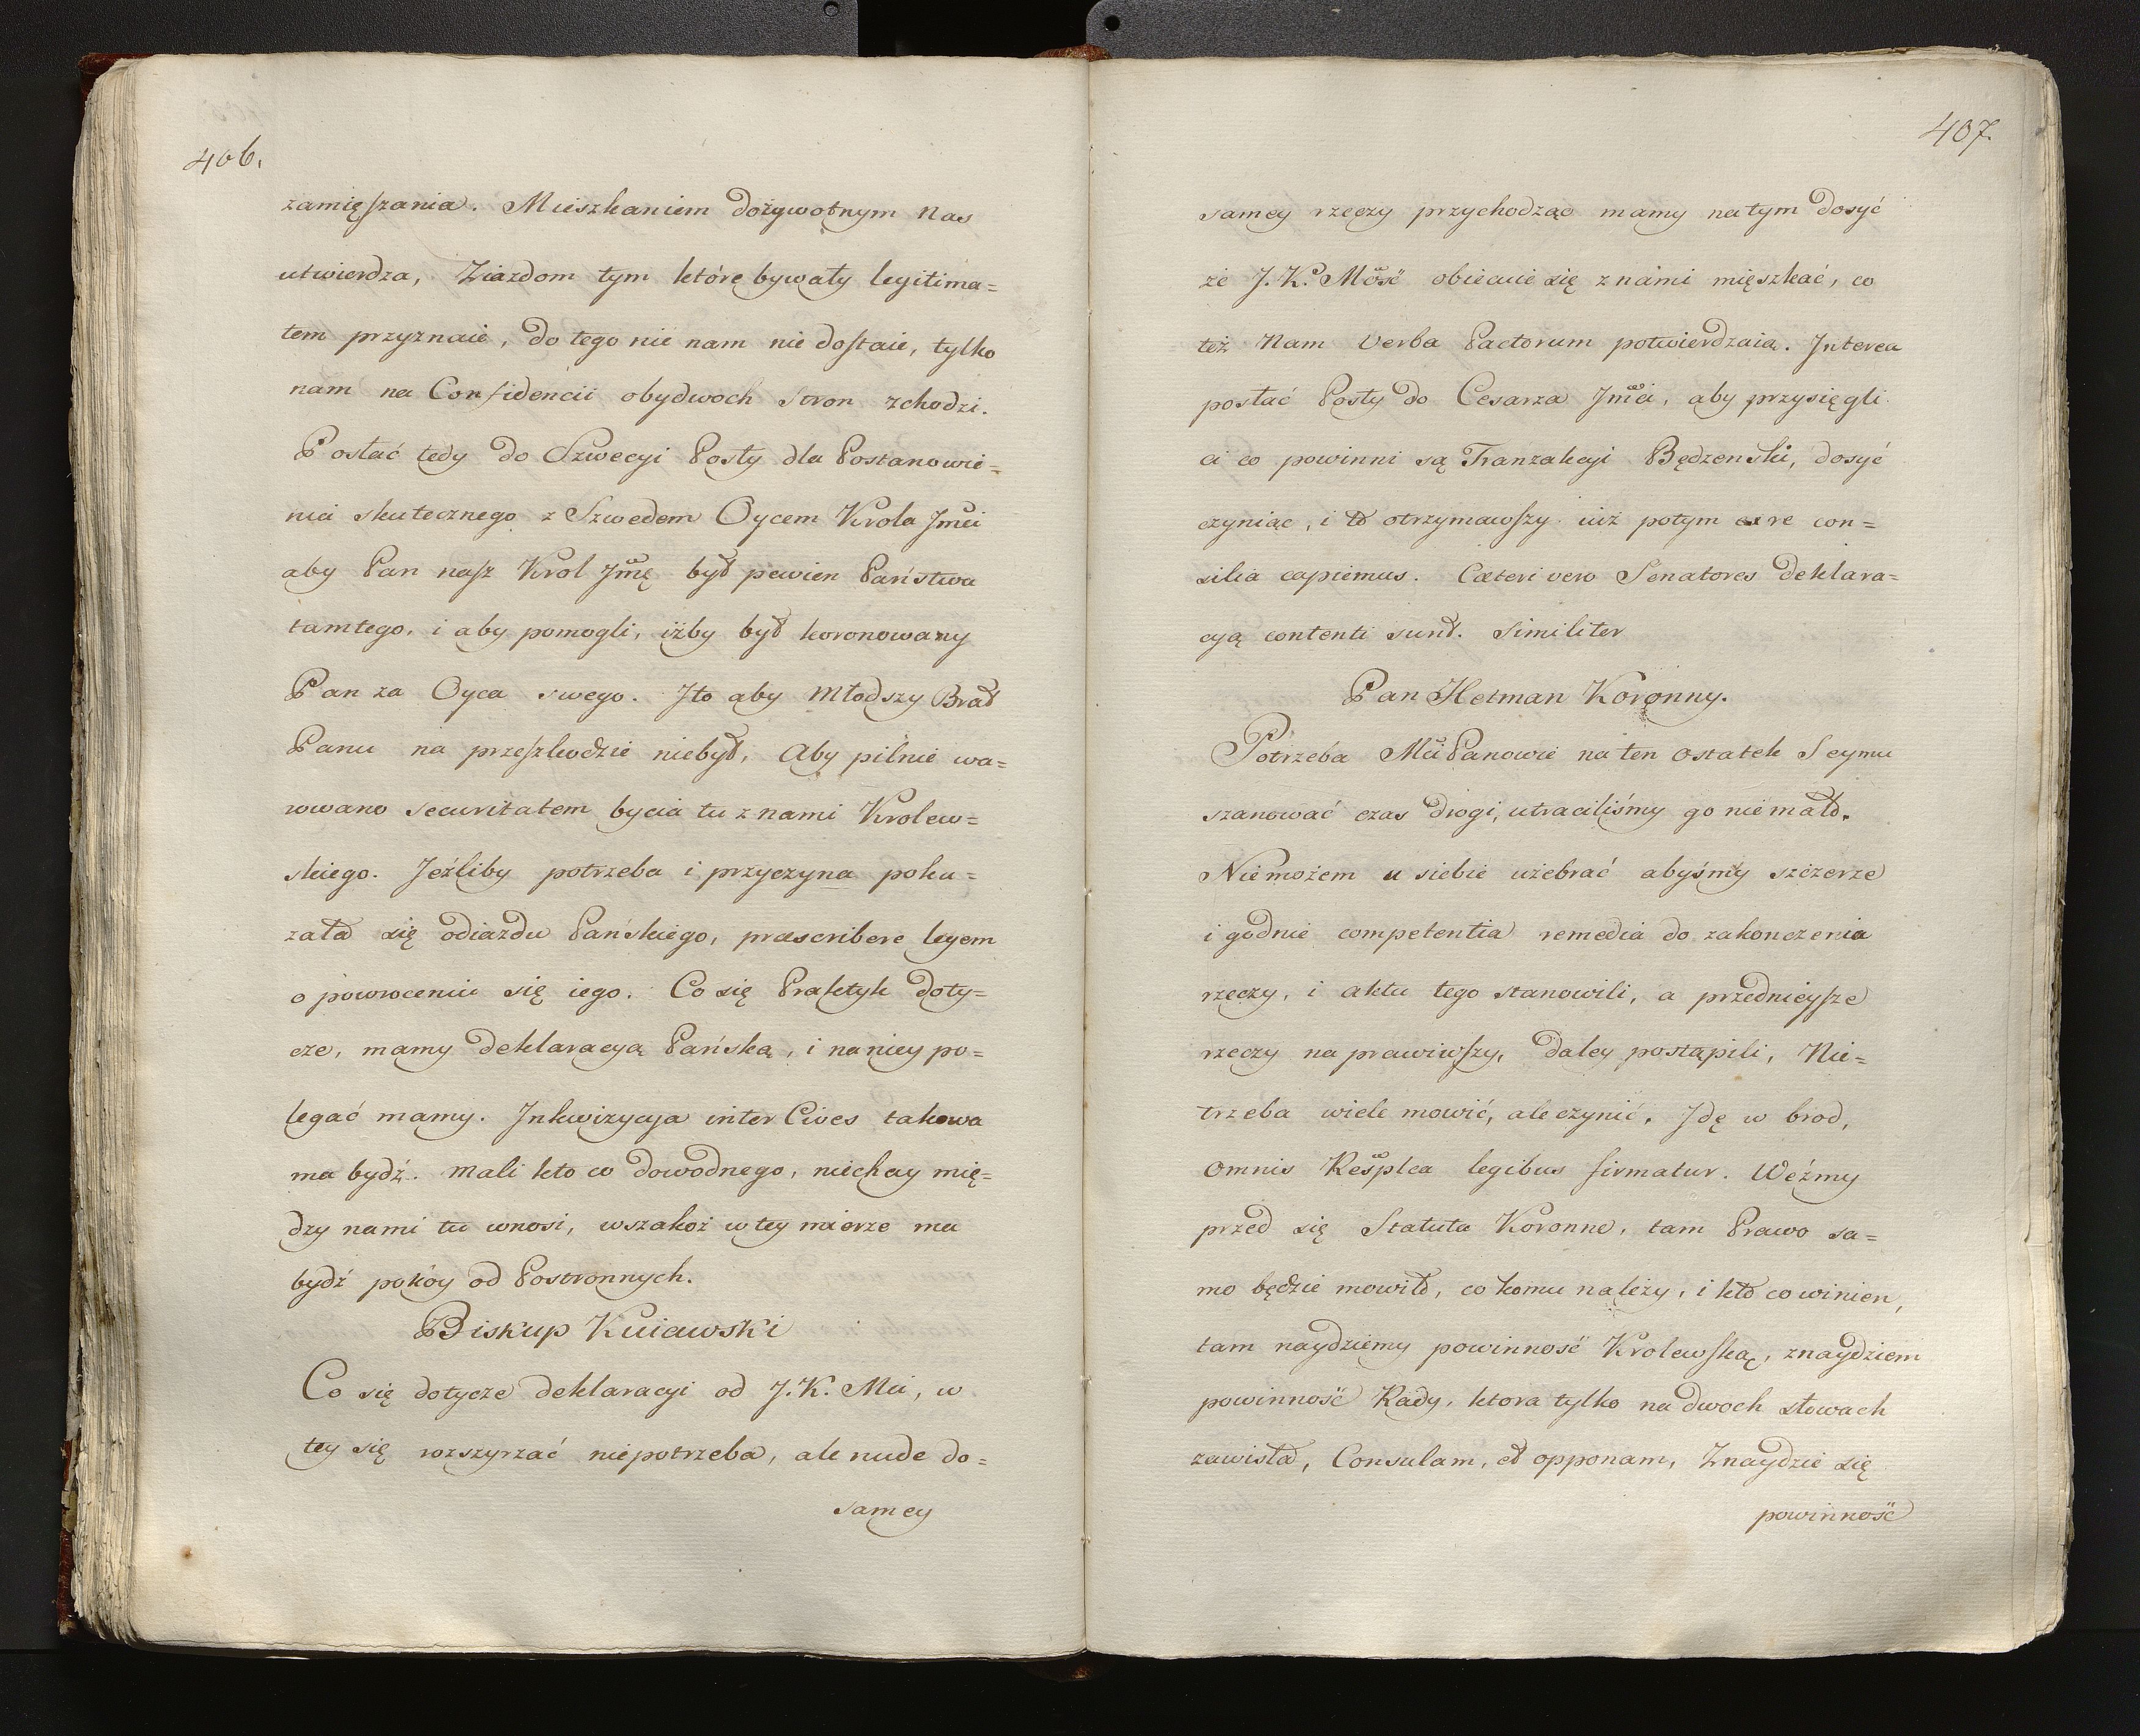 406.
zamięszania. Mieszkaniem dożywotnym nas
utwierdza, Ziazdom tym które bywały legitima=
tem przyznaie, do tego nic nam nie dostaie, tylko
nam na Confidencii obydwoch Stron zchodzi.
Posłać tedy do Szwecyi Posły dla Postanowie=
nia skutecznego z Szwedem Oycem Krola Jmći
aby Pan nasz Krol Jmć był pewien Państwa
tamtego, i aby pomogli, iżby był koronowany
Pan za Oyca swego. Jto aby Młodszy Brat
Panu na przeszkodzie niebył, Aby pilnie wa=
rowano securitatem bycia tu z nami Krolew=
skiego. Jeźliby potrzeba i przyczyna poka=
zała się odiazdu Pańskiego, præscribere legem
o powroceniu się iego. Co się Praktyk doty=
cze, mamy deklaracyą Pańską, i na niey po=
legać mamy. Jnkwizycya inter Cives takowa
ma bydź. Mali kto co dowodnego, niechay mię=
dzy nami tu wnosi, wszakoż w tey mierze ma
bydź pokóy od Postronnych.
Biskup Kuiawski
Co się dotycze deklaracyi od J. K. Mci, w
tey się rozszyrzać niepotrzeba, ale nude do=
samey
407.
samey rzeczy przychodząc mamy na tym dosyć
że J. K. Mość obiecuie się z nami mięszkać, co
też Nam Verba Pactorum potwierdzaią. Jnterea
posłać Posły do Cesarza Jmci, aby przysięgli
ci co powinni są Tranzakcyi Będzenski, dosyć
czyniąc, i to otrzymawszy iuż potym ex re con=
silia capiemus. Cæteri vero Senatores deklara=
cyą contenti sunt. Similiter
Pan Hetman Koronny.
Potrzeba Mci Panowie na ten ostatek Seymu
szanować czas drogi, utraciliśmy go nie mało.
Nie możem u siebie użebrać abyśmy szczerze
i godnie competentia remedia do zakonczenia
rzeczy, i aktu tego stanowili, a przednieysze
rzeczy naprawiwszy, daley postąpili, Nie=
trzeba wiele mowić, ale czynić. Jdę w brod,
Omnis Resplca legibus firmatur. Weźmy
przed się Statuta Koronne, tam Prawo sa=
mo będzie mowiło, co komu należy, i kto co winien,
tam naydziemy powinność Krolewską, znaydziem
powinność Rady, ktora tylko na dwoch słowach
zawisła, Consulam, et opponam, Znaydzie się
powinność